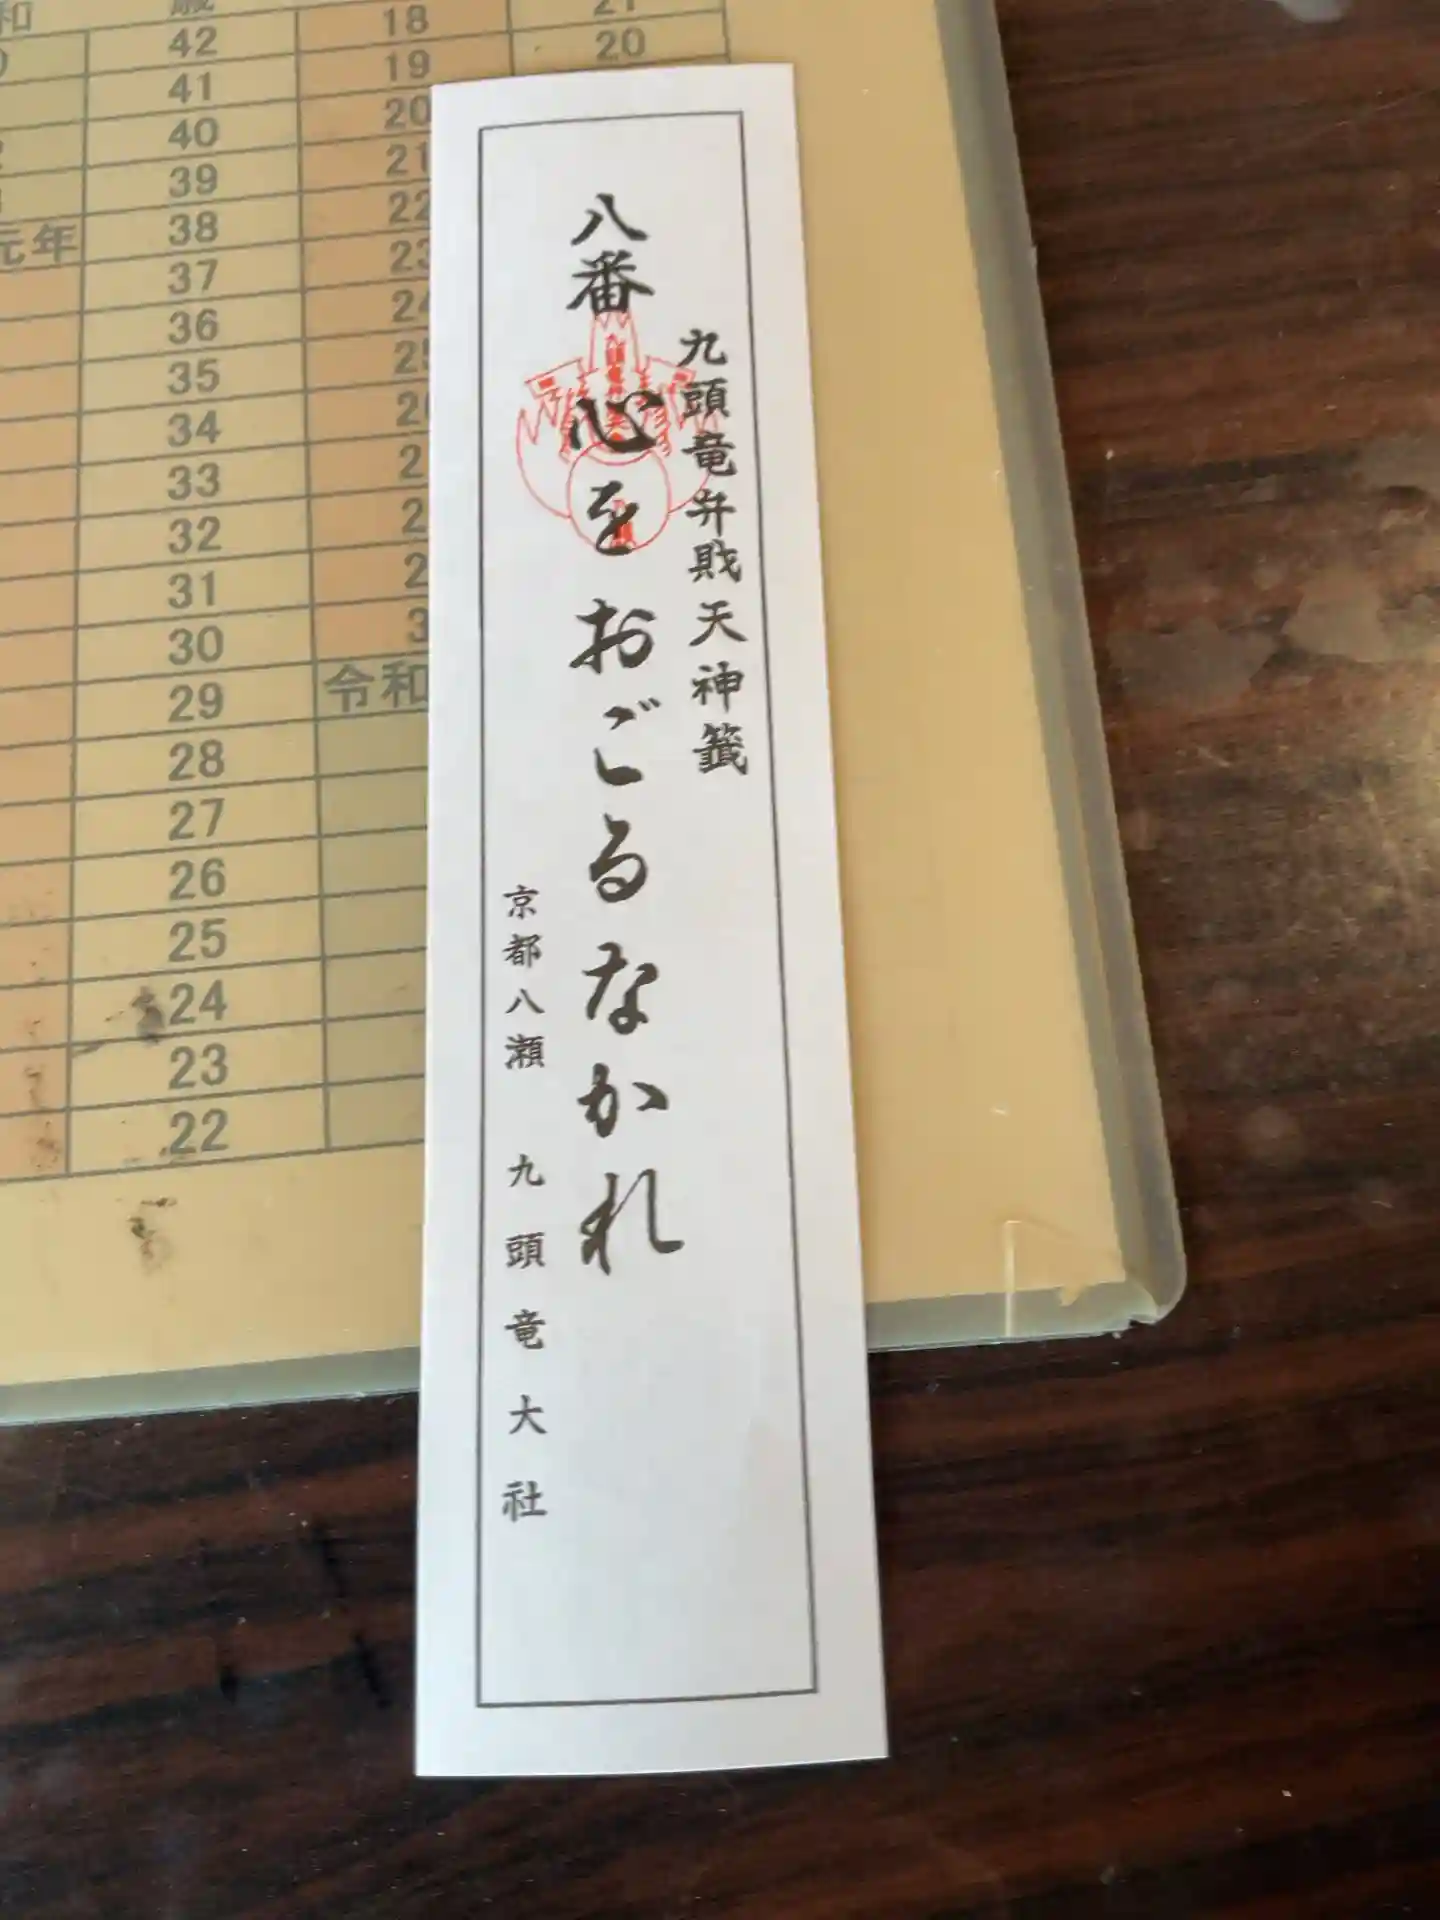 九頭竜弁財天神籤
八番 心をおごるなかれ
京都八瀬 九頭竜大社
和 歳 21
42 18 20
41 19
40 20
39 21
元年 38 22
37 23
36 24
35
34
33
32
31
30
29 令和
28
27
26
25
24
23
22